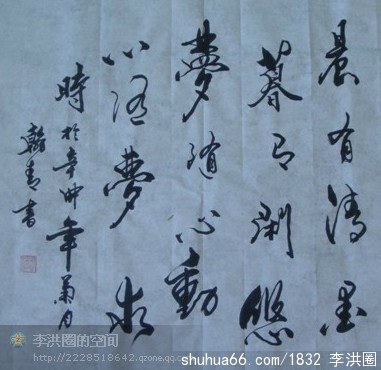 晨有清
暮有閑悠
夢随心動
心随夢求
時於辛卯年菊月
書
李洪圈的空间
http://2228518642.qzone.qq.com
shuhua66.com/1832 李洪圈